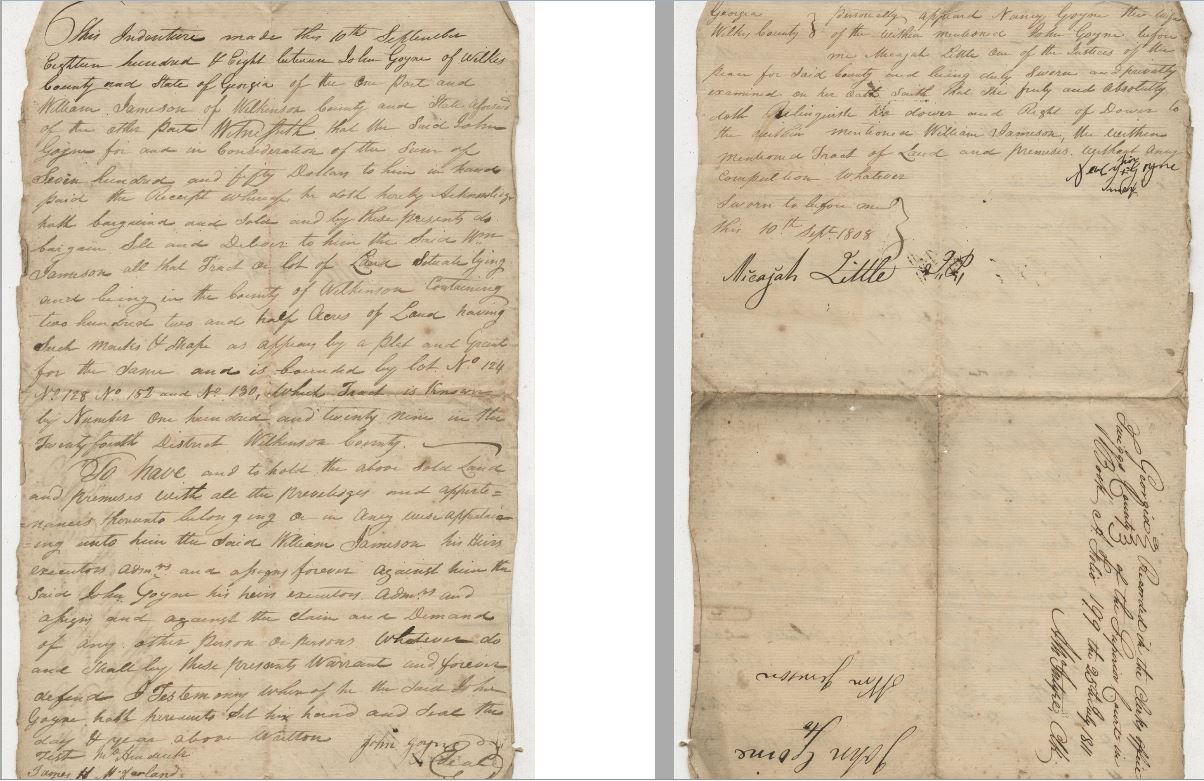 This Indenture made this 10th September
Eighteen hundred & Eight between John Goyne of Wilkes
County and State of Georgia of the One part and
William Jameson of Wilkinson County and State aforesd
of the other part Witnesseth that the Said John
Goyne for and in Consideration of the Sum of
Seven hundred and fifty Dollars to him in hand
paid the Receipt whereof he doth hereby Acknowledge
hath bargained and Sold and by these presents do
bargain Sell and Deliver to him the Said Wm
Jameson all that Tract or lot of Land Situate lying
and being in the County of Wilkinson Containing
two hundred two and half Acres of Land having
Such marks & Shape as appears by a Plat and Grant
for the Same and is bounded by lot No 124
No 128 No 152 and No 130, Which Tract is Known
by Number One hundred and twenty nine in the
Twenty fourth District Wilkinson County.
To have and to hold the above Sold Land
and premises with all the and apperte=
nances thereunto belonging or in Any wise appertain
ing unto him the Said William Jameson his Heirs
executors Admrs and assigns forever against him the
Said John Goyne his heirs executors Admrs and
assigns and against the claim and Demand
of any other person or persons Whatever do
and Shall by these presents Warrant and forever
defend I Testemony whereof he the Said John
Goyne hath hereunto Set his hand and Seal the
day & year above Written
John Goyne
Seal
Test
James H
Georgia
Wilkes County
personally appeard Nancy Goyne the wife
of the within mentioned John Goyne before
me Micajah Little One of the Justices of the
peace for Said County and being duly Sworn and privately
examined on her Oath Saith that She freely and Absolutely
doth Relinquish her dower and Right of Dower to
the within mentioned William Jameson, the within
mentioned Tract of Land and premises without any
Compultion Whatever
her
mark
Sworn to before me
this 10th Sept 1808
Micajah Little J.P.
Georgia
County
Recorded in the Clerks office
of the Superior Court in
Book A
John Goyne
To
Wm Jameson